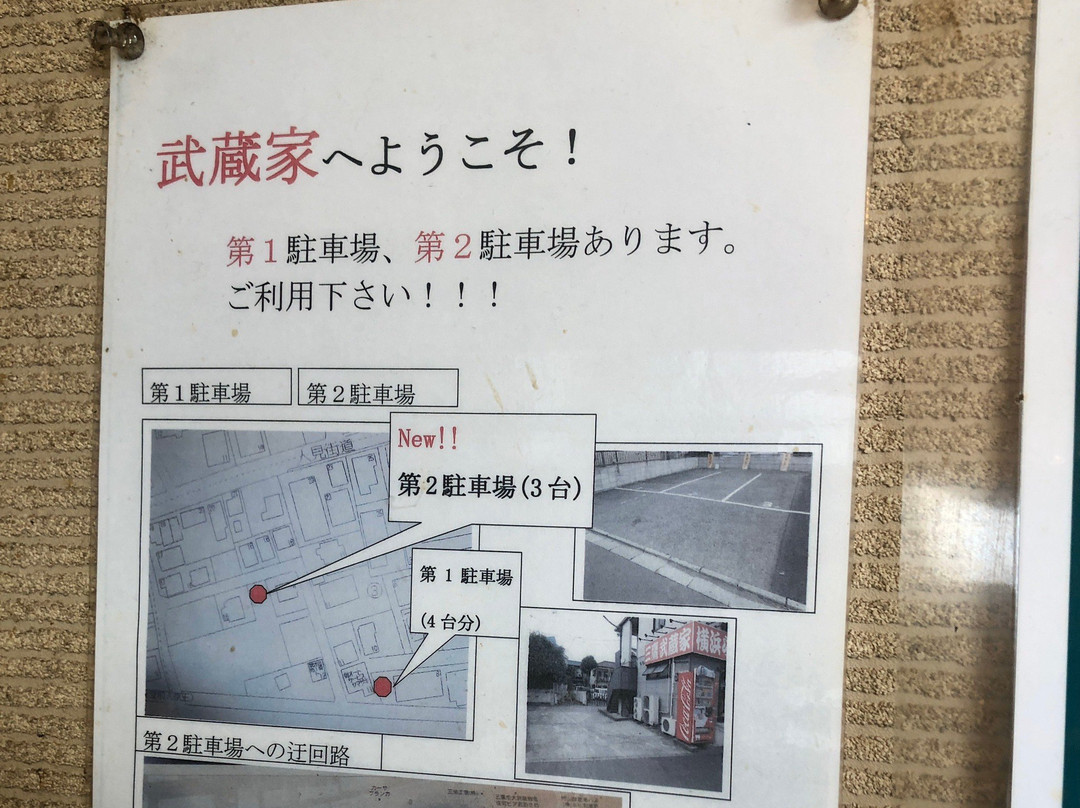 武蔵家へようこそ！
第１駐車場、第２駐車場あります。
ご利用下さい！！！
第１駐車場
第２駐車場
人見街道
New!!
第２駐車場(3台)
第１駐車場
(4台分)
武蔵家 横浜
第２駐車場への迂回路